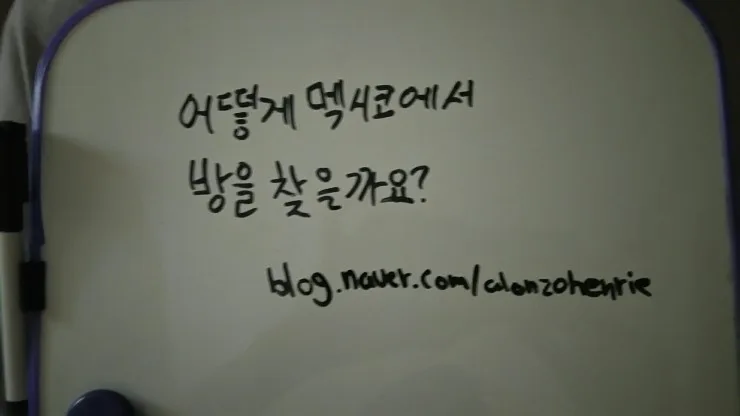 어떻게 멕시코에서
방을 찾을까요?
blog.naver.com/alonzohenrie